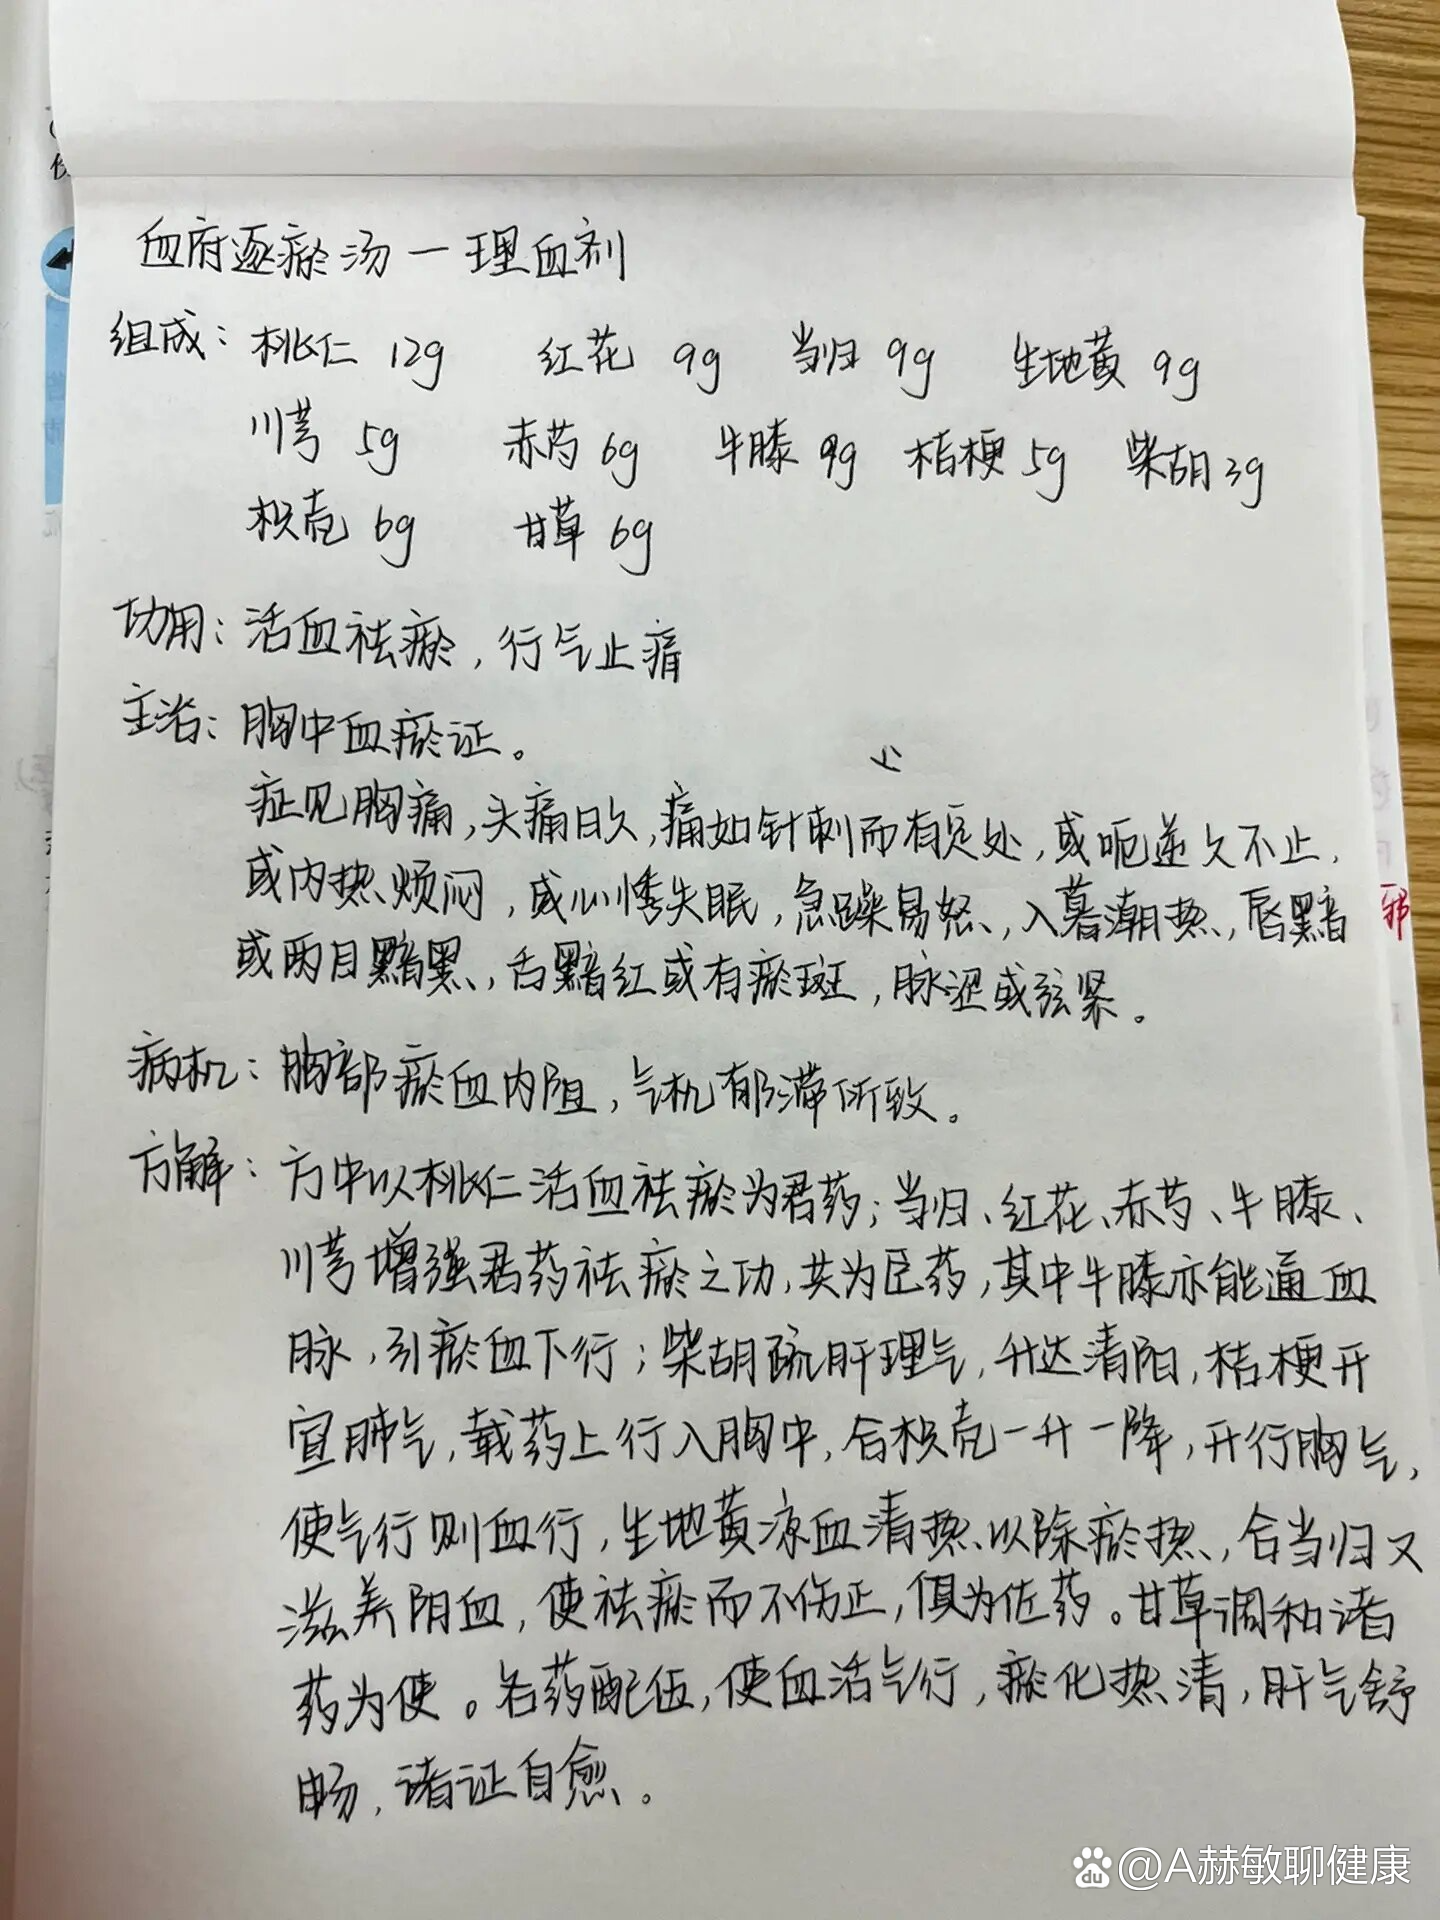 血府逐瘀汤一理血剂
组成：桃仁 12g 红花 9g 当归 9g 生地黄 9g
川芎 5g 赤芍 6g 牛膝 9g 桔梗 5g 柴胡 3g
枳壳 6g 甘草 6g
功用：活血祛瘀，行气止痛
主治：胸中血瘀证。
症见胸痛，头痛日久，痛如针刺而有定处，或呃逆久不止，
或内热烦闷，或心悸失眠，急躁易怒，入暮潮热，唇黯
或两目黯黑，舌黯红或有瘀斑，脉涩或弦紧。
邪
病机：胸部瘀血内阻，气机郁滞所致。
方解：方中以桃仁活血祛瘀为君药；当归、红花、赤芍、牛膝、
川芎增强君药祛瘀之功，共为臣药，其中牛膝亦能通血
脉，引瘀血下行；柴胡疏肝理气，升达清阳，桔梗开
宣肺气，载药上行入胸中，合枳壳一升一降，开行胸气，
使气行则血行，生地黄凉血清热以除瘀热，合当归又
滋养阴血，使祛瘀而不伤正，俱为佐药。甘草调和诸
药为使。各药配伍，使血活气行，瘀化热清，肝气舒
畅，诸证自愈。
du @A赫敏聊健康